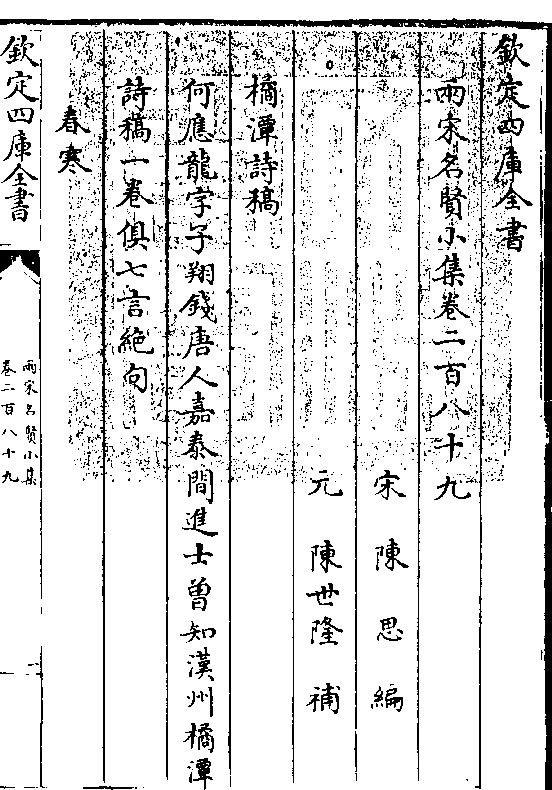 欽定四庫全書
兩宋名賢小集卷二百八十九
宋 陳 思 編
元 陳世隆 補
橘潭詩稿
何應龍字子翔錢唐人嘉泰間進士曾知漢州橘潭
詩稿一卷俱七言絶句
春寒
欽定四庫全書
兩宋名賢小集
卷二百八十九
一